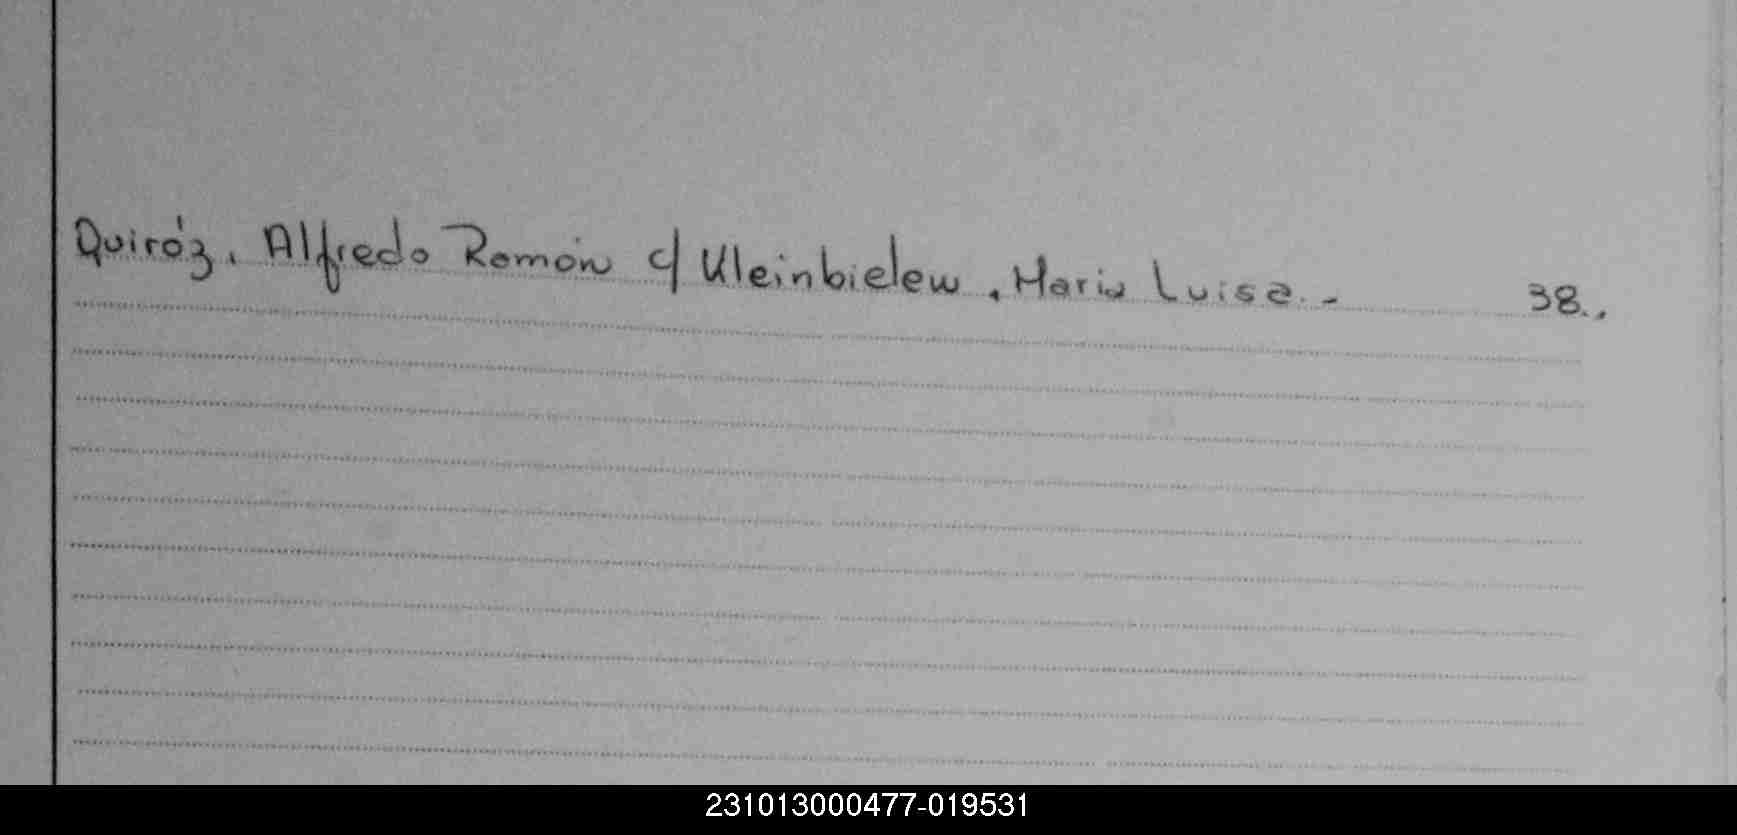 Quiróz, Alfredo Ramón c/ Kleinbielew, Maria Luisa.- 38.,
231013000477-019531